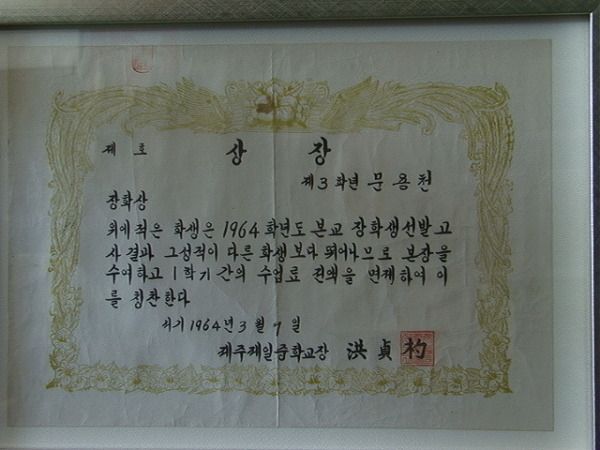 제 호 상 장
제3학년 문용천
장학상
위에 적은 학생은 1964 학년도 본교 장학생선발 고
사결과 그성적이 다른 학생 보다 뛰어나므로 본장을
수여하고 1 학기 간의 수업료 전액을 면제하여 이
를 칭찬한다
서기 1964년 3월 7일
제주제일중학교장 洪貞杓